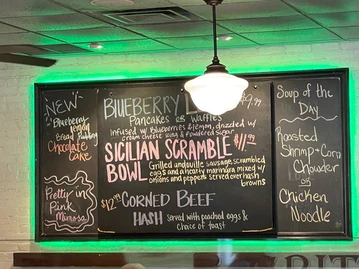 NEW
Blueberry
Lemon
Bread Pudding
Chocolate
Cake
Pretty in
Pink
Mimosa
BLUEBERRY
9.99
Pancakes or Waffles
Infused w/ Blueberries & lemon, drizzled w/
cream cheese icing & powdered sugar
SICILIAN SCRAMBLE $11.99
BOWL
Grilled andouille sausage, scrambled
eggs and a hearty marinara mixed w/
onions and peppers served over hash
browns
$12.99 CORNED BEEF
HASH served with poached eggs &
choice of toast
Soup of the
Day
Roasted
Shrimp & Corn
Chowder
or
Chicken
Noodle